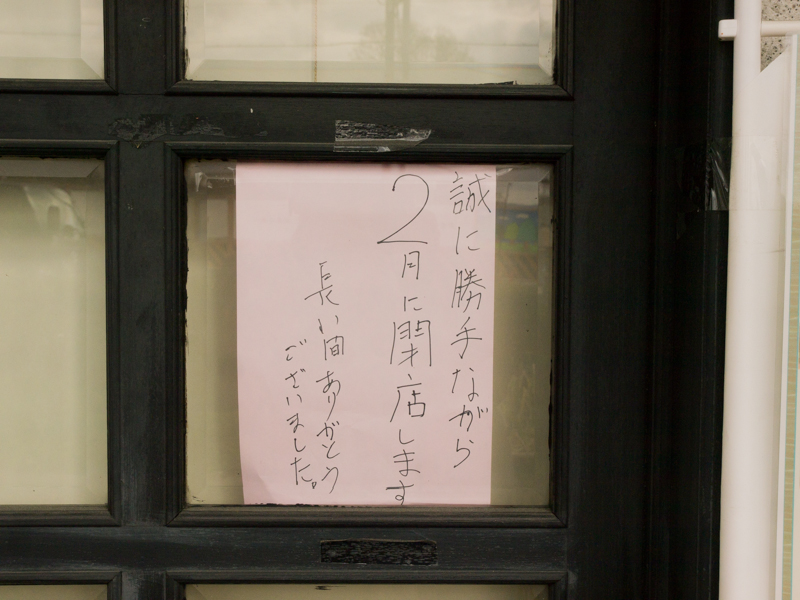 誠に勝手ながら
2月に閉店します
長い間ありがとう
ございました。